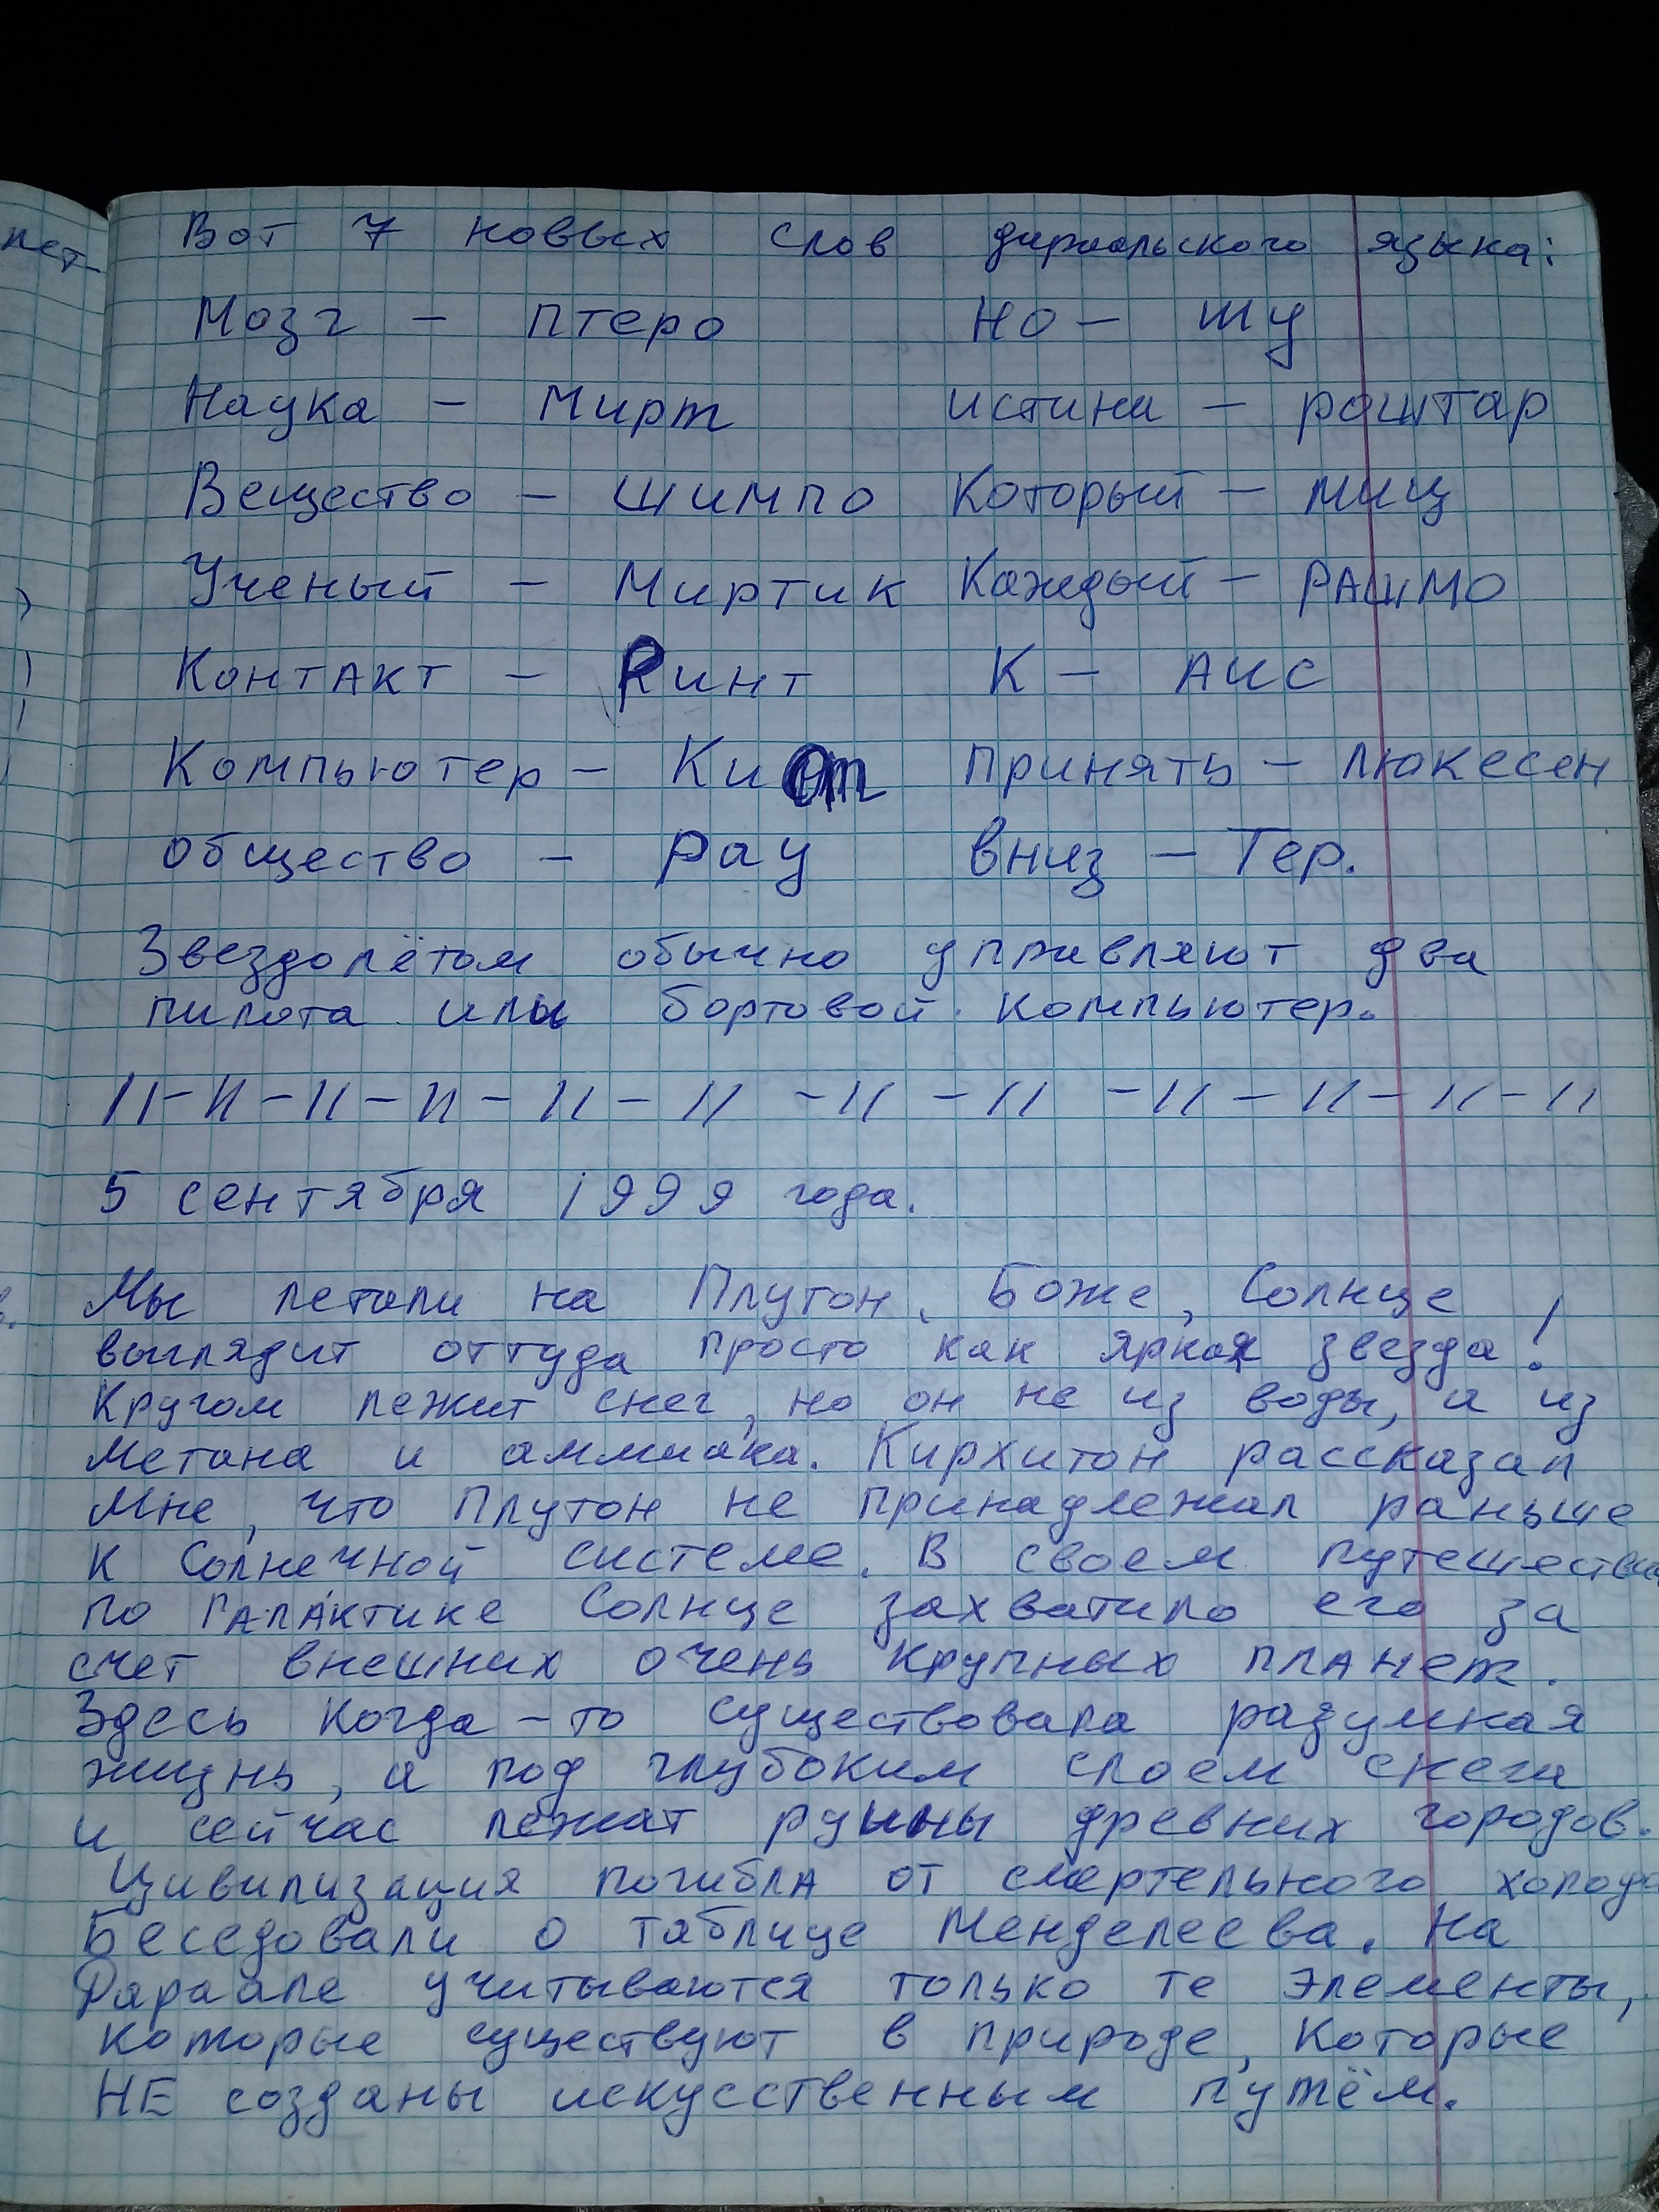 лет-
Вот 7 новых слов дираальского языка:
Мозг – птеро но – шу
Наука – Мирт истина – раштар
Вещество – шимпо Который – миц
Ученый – Миртик Каждый – РАШМО
Контакт – Ринт К – АИС
Компьютер – Киот принять – люкесен
общество – рау вниз – Тер.
Звездолётом обычно управляют два
пилота или бортовой компьютер.
11 – 11 – 11 – 11 – 11 – 11 – 11 – 11 – 11 – 11 – 11 – 11
5 сентября 1999 года.
Мы летали на Плутон. Боже, Солнце
выглядит оттуда просто как яркая звезда!
Кругом лежит снег, но он не из воды, а из
метана и аммиака. Кирхитон рассказал
мне, что Плутон не принадлежал раньше
к Солнечной системе. В своем путешестви
по ГАЛАКТИКЕ Солнце захватило его за
счет внешних очень крупных планет.
Здесь когда-то существовала разумная
жизнь, а под глубоким слоем снега
и сейчас лежат руины древних городов.
Цивилизация погибла от смертельного холода
Беседовали о таблице Менделеева. На
учитываются только те элементы,
которые существуют в природе, которые
НЕ созданы искусственным путём.